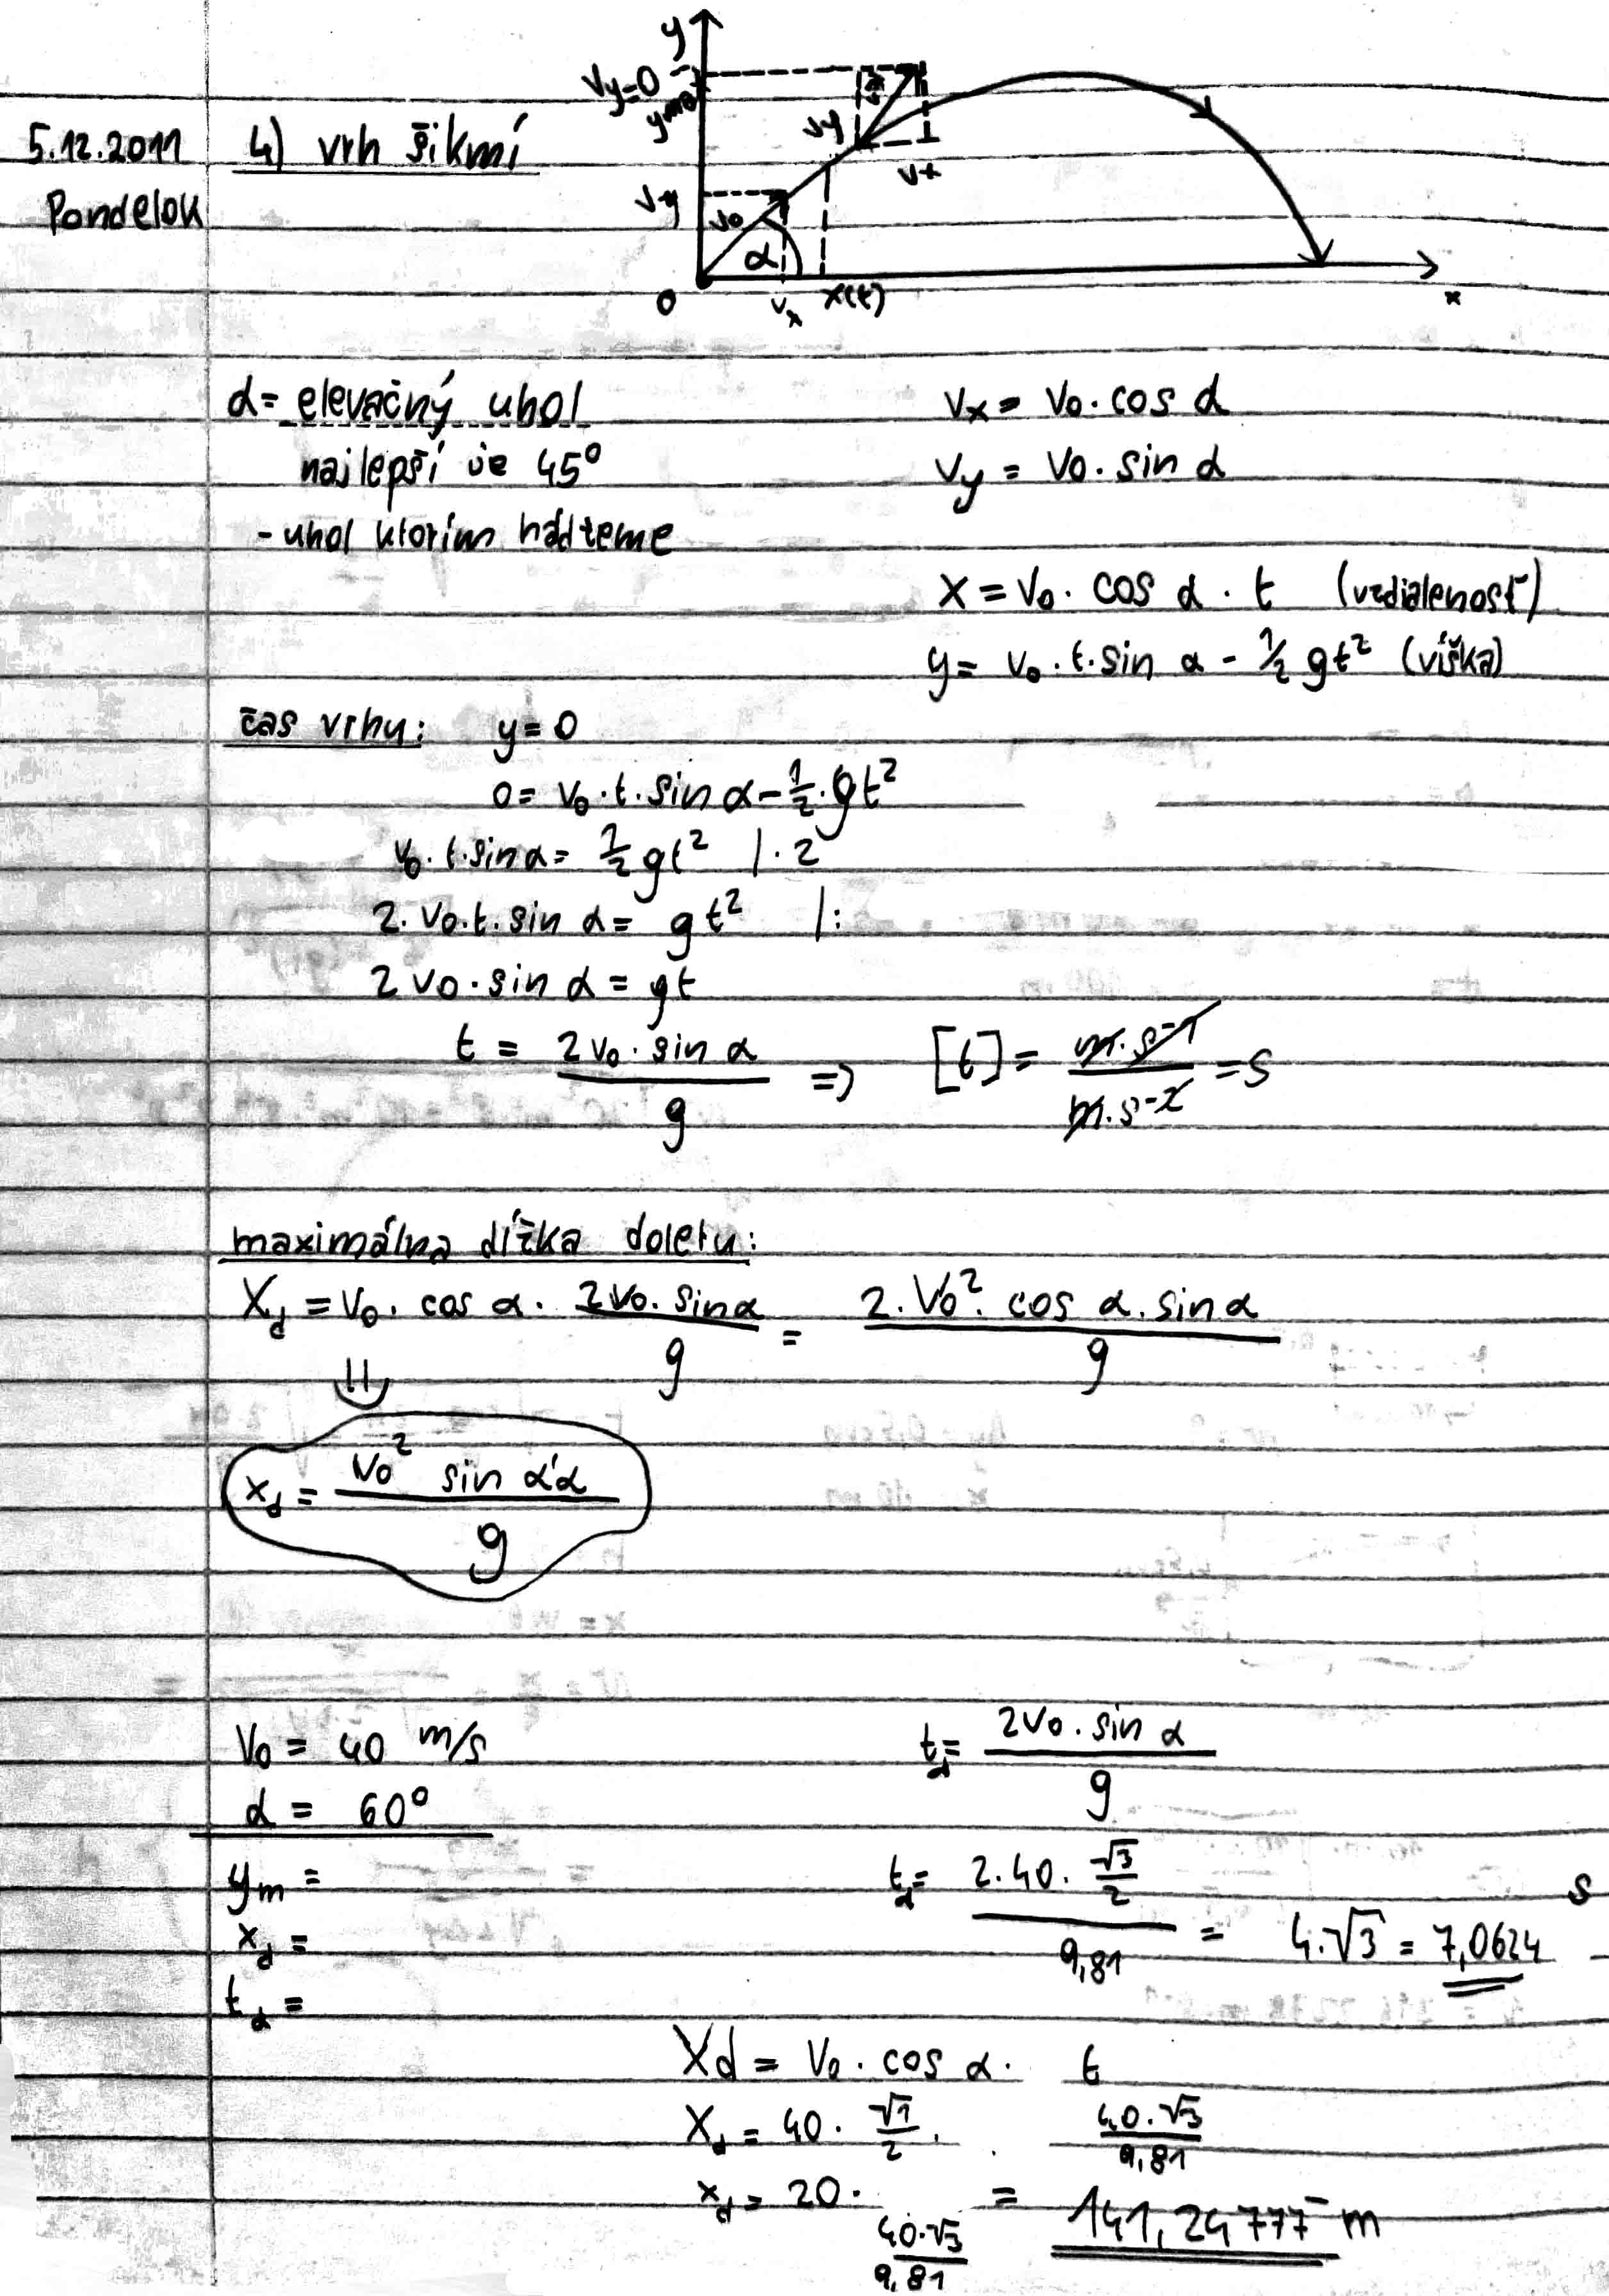 y
Vy=0
ymax
5.12.2011 4) vrh šikmí
Pondelok
vy
vx
vy
v0
α
0 vx x(t) x
α = elevačný uhol
vx = v0 . cos α
najlepší je 45°
vy = v0 . sin α
- uhol ktorím hádžeme
x = v0 . cos α . t (vzdialenosť)
y = v0 . t . sin α - 1/2 gt² (víška)
čas vrhu: y = 0
0 = v0 . t . sin α - 1/2 . gt²
v0 . t . sin α = 1/2 gt² / . 2
2 . v0 . t . sin α = gt² / :
2 v0 . sin α = gt
t = 2 v0 . sin α / g => [t] = m.s-1 / m.s-2 = s
maximálna dĺžka doletu:
Xd = v0 . cos α . 2 v0 . sin α / g = 2 . v0² . cos α . sin α / g
xd = v0² sin α α / g
V0 = 40 m/s
α = 60°
td = 2 v0 . sin α / g
ym =
xd =
td =
td = 2 . 40 . √3/2 / 9,81 = 4.√3 = 7,0624 s
Xd = v0 . cos α . t
Xd = 40 . √1/2 . 40.√3 / 9,81
xd = 20 . 40.√3 / 9,81 = 141,24777 m